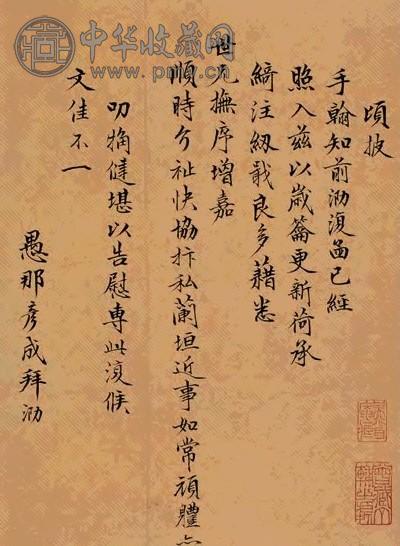 中华收藏网
頃披
手翰知前泐復函已經
照入茲以歲籥更新荷承
綺注紉戢良多藉悉
世兄撫序增嘉
順時介祉快協抃私蘭垣近事如常頑體
叨觕健堪以告慰專此復候
文佳不一
愚那彥成拜泐